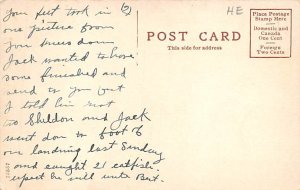 Your feet took in (2)
one picture from
your knees down
Jack wanted to have
some finished and
send to you but
I told him not
to Sheldon and Jack
went down to foot of
our landing last Sunday
and caught 21 catfish
expect he will write Bert.
HE
POST CARD
This side for address
Place Postage
Stamp Here
Domestic and
Canada
One Cent
Foreign
Two Cents